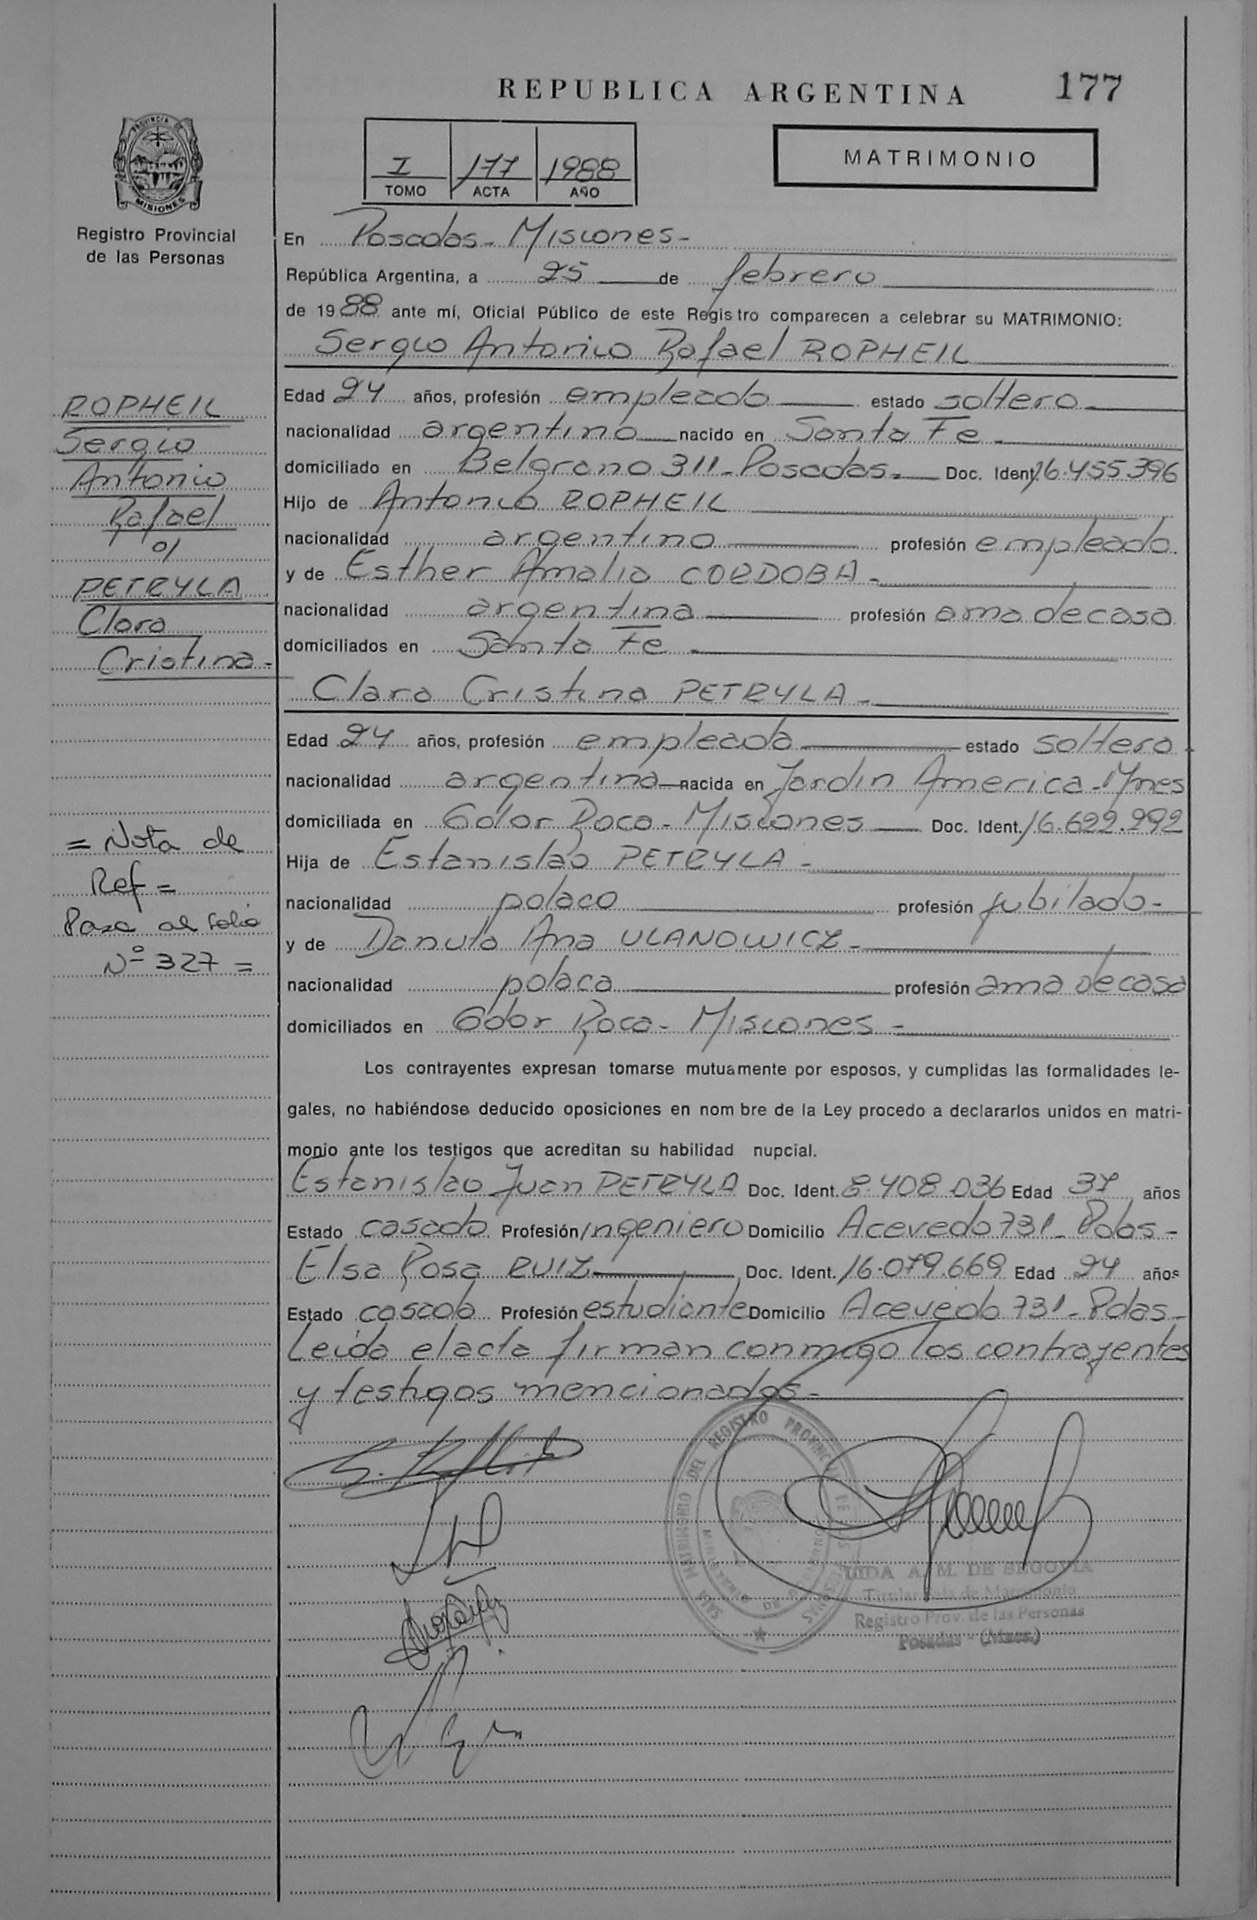 REPUBLICA ARGENTINA 177
PROVINCIA DE MISIONES
Registro Provincial
de las Personas
I 177 1988
TOMO ACTA AÑO
MATRIMONIO
En Posadas - Misiones -
República Argentina, a 25 de febrero
de 1988 ante mí, Oficial Público de este Registro comparecen a celebrar su MATRIMONIO:
Sergio Antonio Rafael ROPHEIL
Edad 24 años, profesión empleado estado soltero
nacionalidad argentino nacido en Santa Fe
domiciliado en Belgrano 311 - Posadas - Doc. Ident. 16.455.396
Hijo de Antonio ROPHEIL
nacionalidad argentino profesión empleado
y de Esther Amalia CORDOBA -
nacionalidad argentina profesión ama de casa
domiciliados en Santa Fe -
Clara Cristina PETRYLA -
Edad 24 años, profesión empleada estado soltera -
nacionalidad argentina nacida en Jardin America - Mnes
domiciliada en Gdor Roca - Misiones Doc. Ident. 16.622.292
Hija de Estanislao PETRYLA -
nacionalidad polaco profesión jubilado -
y de Danuta Ana ULANOWICZ -
nacionalidad polaca profesión ama de casa
domiciliados en Gdor Roca - Misiones -
Los contrayentes expresan tomarse mutuamente por esposos, y cumplidas las formalidades le-
gales, no habiéndose deducido oposiciones en nombre de la Ley procedo a declararlos unidos en matri-
monio ante los testigos que acreditan su habilidad nupcial.
Estanislao Juan PETRYLA Doc. Ident. 8.408.036 Edad 37 años
Estado casado Profesión Ingeniero Domicilio Acevedo 731 - Pdas -
Elsa Rosa RUIZ Doc. Ident. 16.079.669 Edad 24 años
Estado casada Profesión estudiante Domicilio Acevedo 731 - Pdas -
Leida el acta firman conmigo los contrayentes
y testigos mencionados -
ROPHEIL
Sergio
Antonio
Rafael
c/
PETRYLA
Clara
Cristina -
= Nota de
Ref =
Pasa al folio
Nº 327 =
SALA MATRIMONIO DEL REGISTRO PROVINCIAL DE LAS PERSONAS
LIDA A. M. DE SEGOVIA
Titular Sala de Matrimonio
Registro Prov. de las Personas
Posadas - (Mnes.)